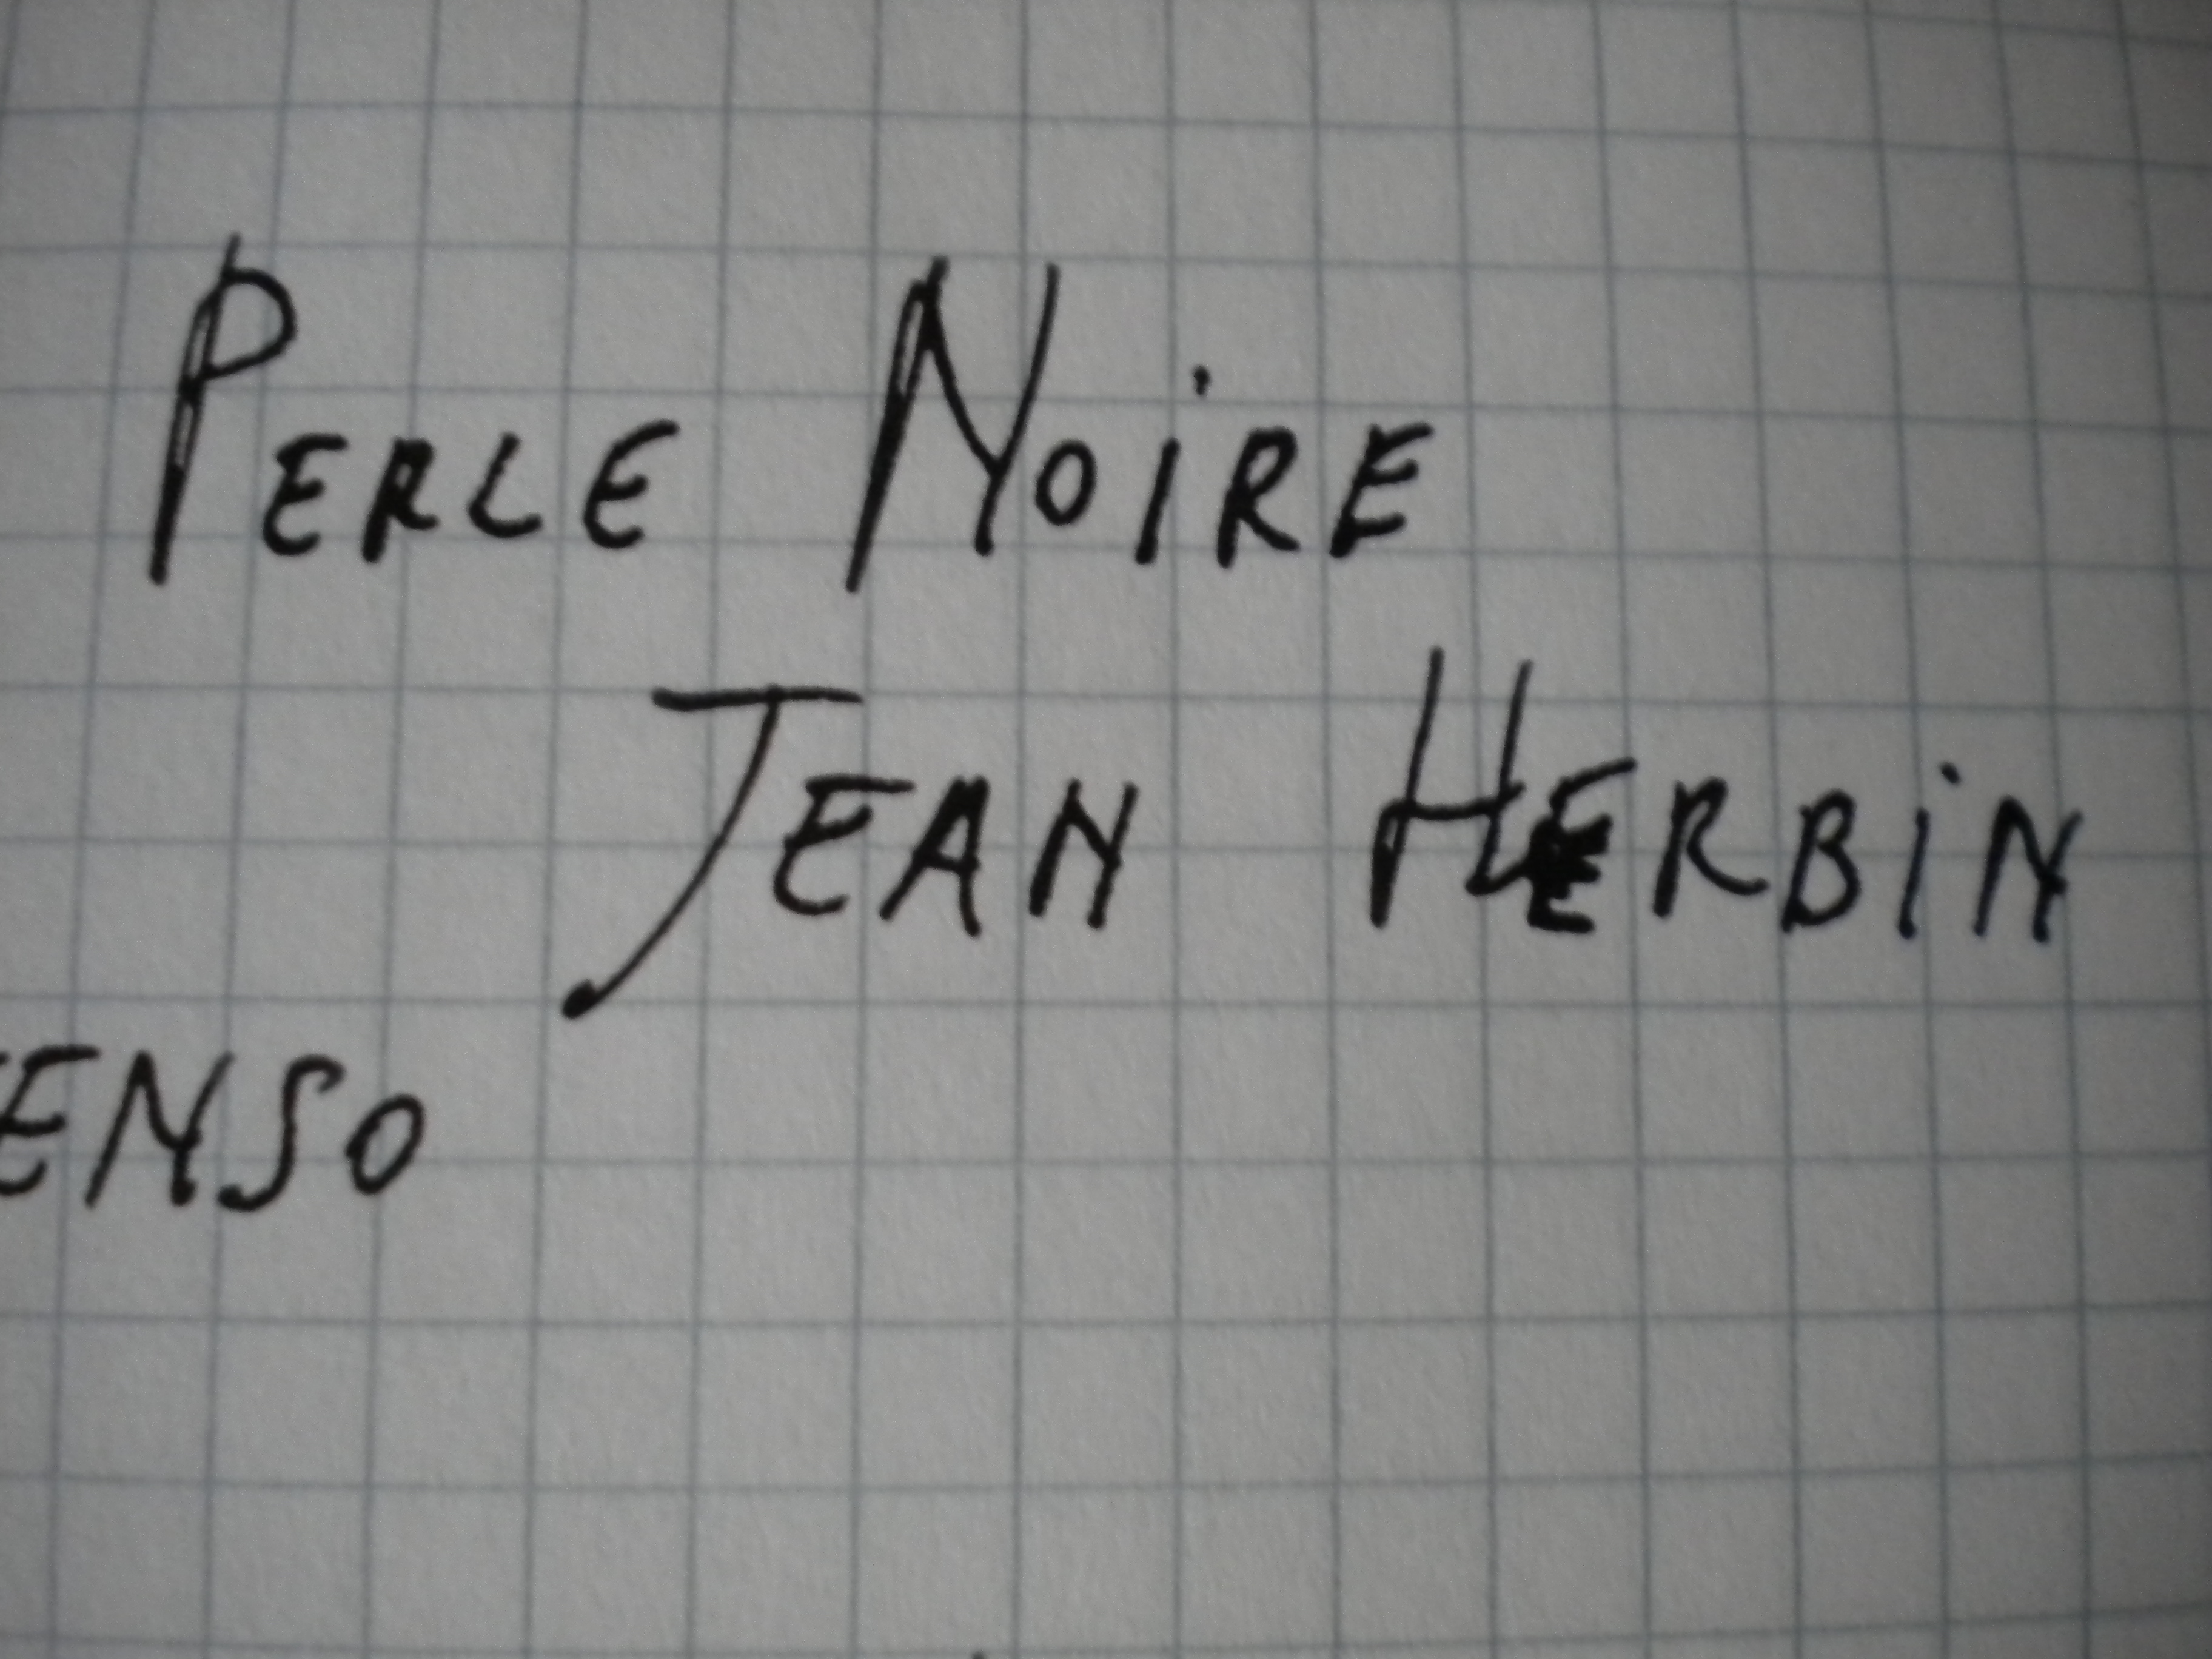 PERLE NOiRE
JEAN HERBiN
ENSO